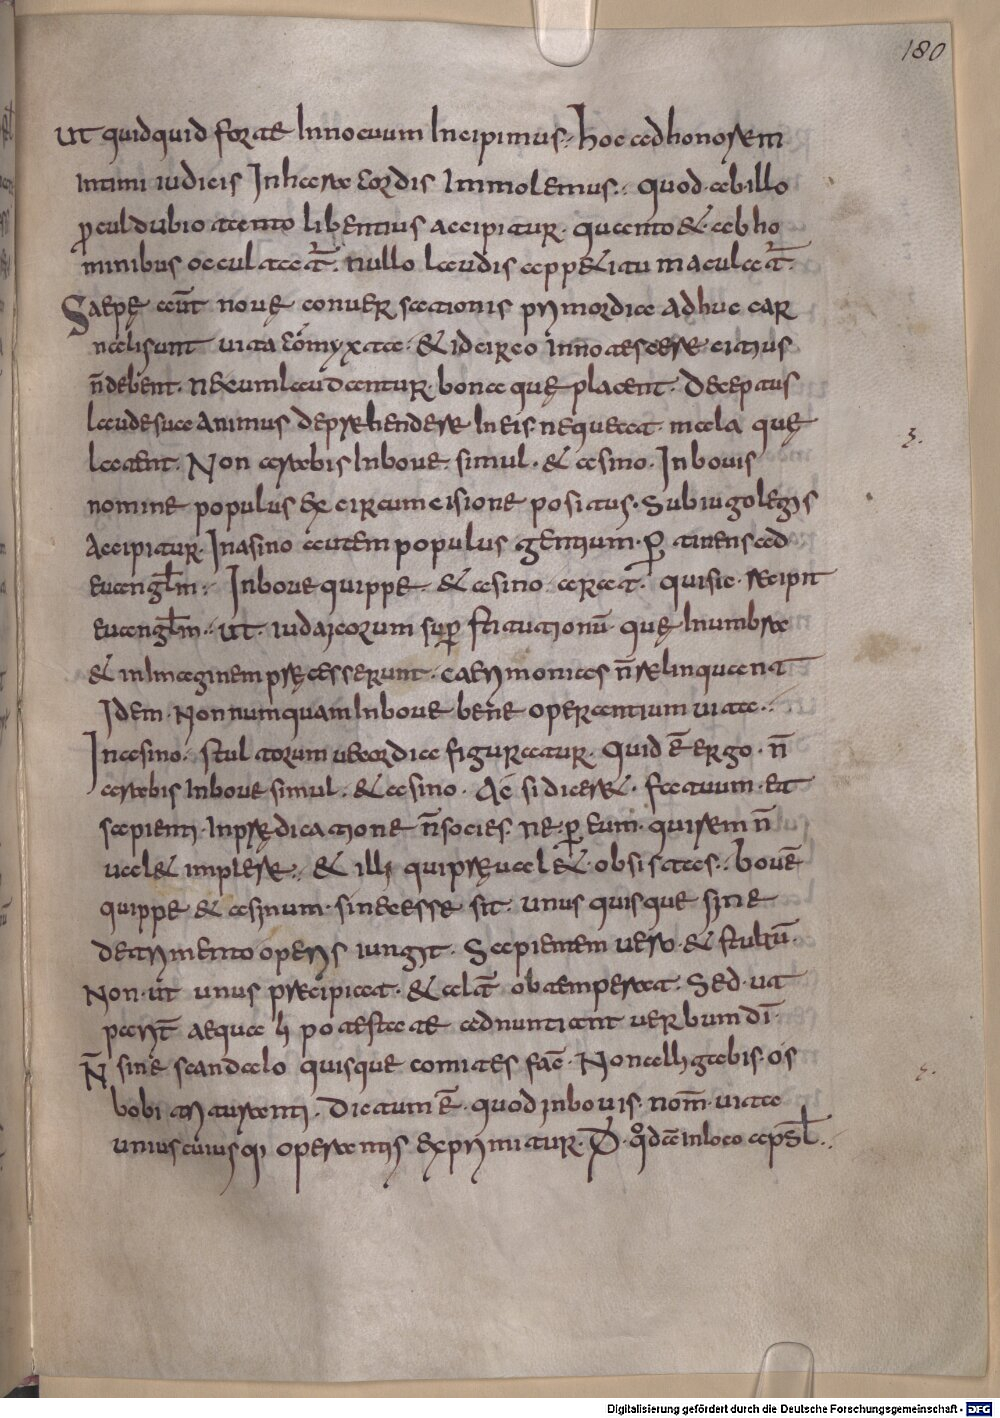 180
ut quidquid forte Innocuum Incipimus. hoc ad honorem
intimi iudicis In hac cordis Immolemus. quod ab illo
ꝓculdubio tanto libentius accipitur. quanto & ab ho
minibus occultat̄. nullo laudis appetitu maculat̄.
Saepę aut̄ nouę conuersationis primordia adhuc car
nali sunt uita commyxta. & idcirco innotescere citius
n̄ debent. ne cum laudantur. bona quę placent. Deceptus
laude sua animus deprehendere In eis nequeat. mala quę
latent. Non arabis In boue. simul. & asino. In bouis
nomine populus ex circumcisione positus. Sub iugo legis
Accipitur. In asino autem populus gentium. ꝑtinens ad
euangl̄m. In boue quippe. & asino. arat. qui sic recipit
euangl̄m. ut iudaicorum suꝑstitutionū. quę In umbra
& in Imaginem pręcesserunt. caerimonias n̄ relinquant
Idem. Nonnumquam In boue bene operantium uita.
In asino. stultorum uecordia figuratur. Quid ē ergo. n̄
arabis In boue simul. & asino. Ac si dicere&. fatuum et
sapienti. In prędicatione n̄ socies. ne ꝑ eum. qui rem n̄
uale& implere. & illi qui pręuale&. obsistas. bouē
quippe & asinum. si necesse sit. unus quisque sine
detrimento operis iungit. Sapientem uero. & stultū.
Non ut unus pręcipiat. & alt̄ obtemperat. Sed ut
parit̄ aequa potestate adnuntient uerbum dī.
N̄ sine scandalo quisque comites fac̄. Non alligabis os
bobi trituranti. Dictum ē. quod in bouis. nom̄. uita
uniuscuiusq; operantis exprimitur. in loco apsl̄.
3.
4.
Digitalisierung gefördert durch die Deutsche Forschungsgemeinschaft - DFG